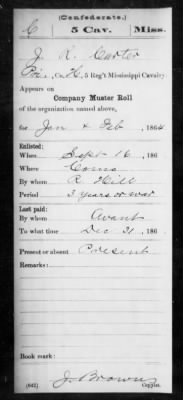 (Confederate.)
C 5 Cav. Miss.
J. R. Carter
Pvt, Co. H, 5 Reg't Mississippi Cavalry
Appears on
Company Muster Roll
of the organization named above,
for Jan & Feb, 1864
Enlisted:
When Sept 16, 186
Where Como
By whom R Hill
Period 3 years or war
Last paid:
By whom Avant
To what time Dec 31, 186
Present or absent Present
Remarks:
Book mark:
(642) J. Brown Copyist.